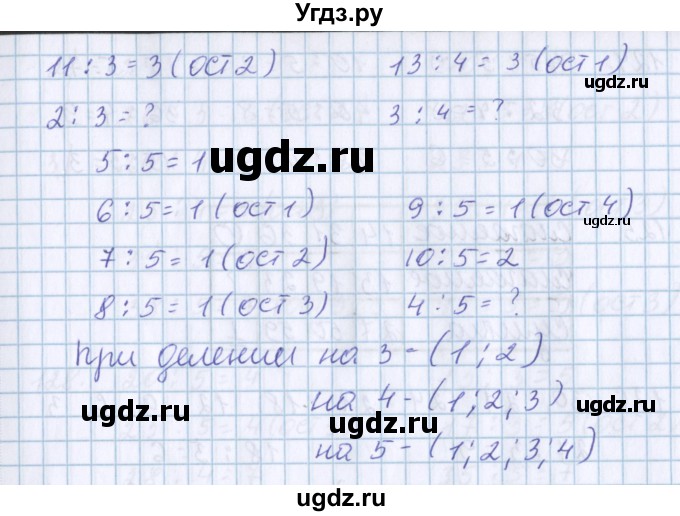 Угдз.ру
11 : 3 = 3 (ост 2)
13 : 4 = 3 (ост 1)
ugdz.ru
2 : 3 = ?
3 : 4 = ?
ugdz.ru
5 : 5 = 1
ugdz.ru
6 : 5 = 1 (ост 1)
9 : 5 = 1 (ост 4)
ugdz.ru
7 : 5 = 1 (ост 2)
10 : 5 = 2
8 : 5 = 1 (ост 3)
4 : 5 = ?
ugdz.ru
При делении на 3 - (1; 2)
на 4 - (1; 2; 3)
ugdz.ru
ugdz.ru
ugdz.ru
на 5 - (1; 2; 3; 4)
ugdz.ru